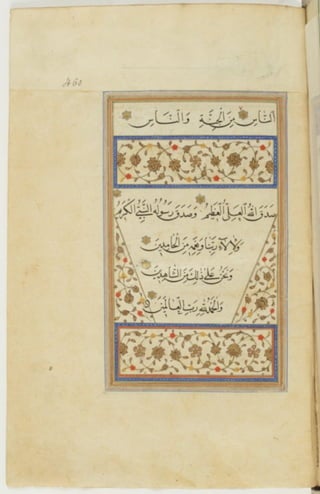 النَّاسِ مِنَ الْجِنَّةِ وَالنَّاسِ
صَدَقَ اللهُ الْعَلِيُّ الْعَظِيمُ وَصَدَقَ رَسُولُهُ النَّبِيُّ الْكَرِيمُ
رَبِّنَا وَنِعَمِهِ مِنَ الْحَامِدِينَ
وَنَحْنُ عَلَى ذَلِكَ مِنَ الشَّاهِدِينَ
وَالْحَمْدُ لِلَّهِ رَبِّ الْعَالَمِينَ